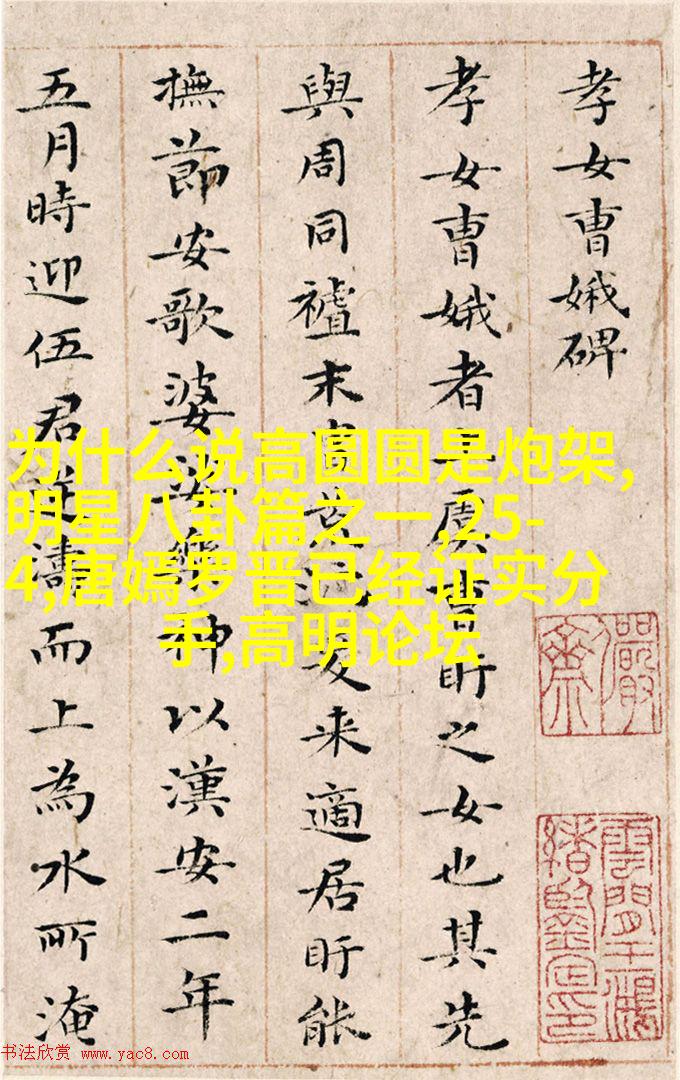 孝女曹娥碑
孝女曹娥者上虞曹盱之女也其先
與周同禮末胄荒沉爰来適居盱能
撫節安歌婆娑樂神以漢安二年
五月時迎伍君逆濤而上為水所淹
为什么说高圆圆是炮架,
明星八卦篇之一,25-
4,唐嫣罗晋已经证实分
手,高明论坛
儼齋
雲間王鴻緒鑒定印
书法欣赏 www.yac8.com